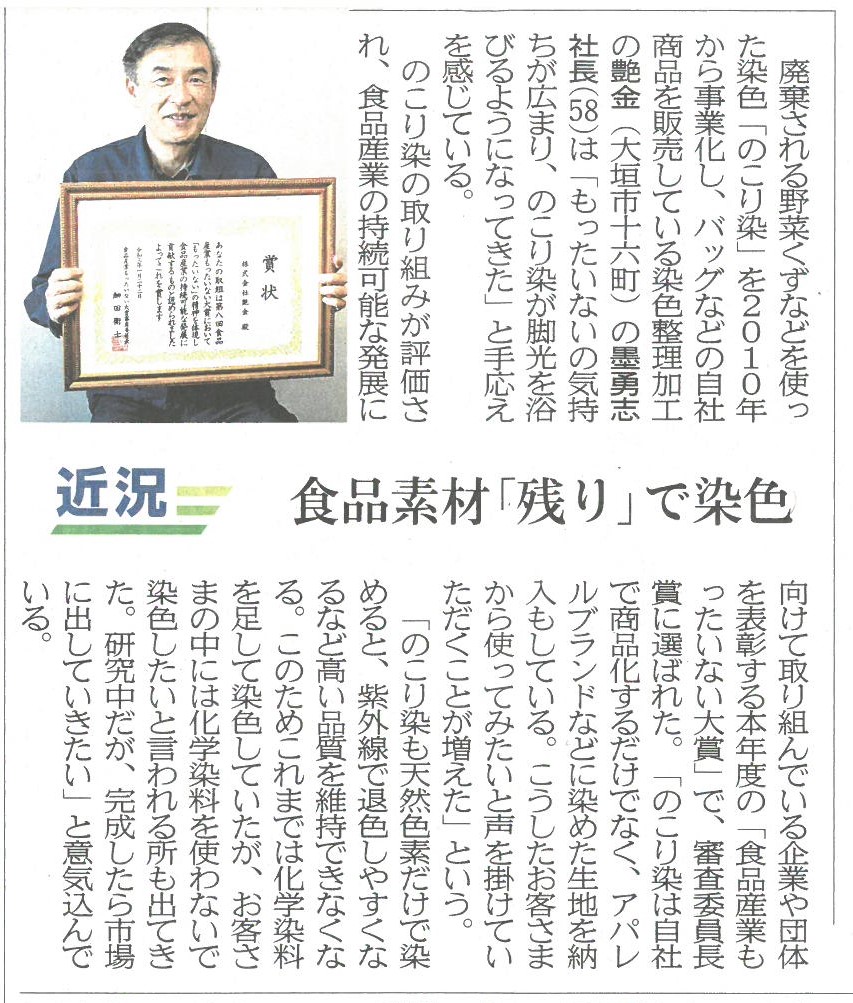 食品素材「残り」で染色
近況
廃棄される野菜くずなどを使っ
た染色「のこり染」を2010年
から事業化し、バッグなどの自社
商品を販売している染色整理加工
の艶金（大垣市十六町）の墨勇志
社長(58)は「もったいないの気持
ちが広まり、のこり染が脚光を浴
びるようになってきた」と手応え
を感じている。
のこり染の取り組みが評価さ
れ、食品産業の持続可能な発展に
向けて取り組んでいる企業や団体
を表彰する本年度の「食品産業も
ったいない大賞」で、審査委員長
賞に選ばれた。「のこり染は自社
で商品化するだけでなく、アパレ
ルブランドなどに染めた生地を納
入もしている。こうしたお客さま
から使ってみたいと声を掛けてい
ただくことが増えた」という。
「のこり染も天然色素だけで染
めると、紫外線で退色しやすくな
るなど高い品質を維持できなくな
る。このためこれまでは化学染料
を足して染色していたが、お客さ
まの中には化学染料を使わないで
染色したいと言われる所も出てき
た。研究中だが、完成したら市場
に出していきたい」と意気込んで
いる。
賞状
株式会社艶金 殿
あなたの取組は第八回食品
産業もったいない大賞において
「もったいない」の精神を体現し
食品産業の持続可能な発展に
貢献するものと認められました
よってこれを賞します
細田衛士